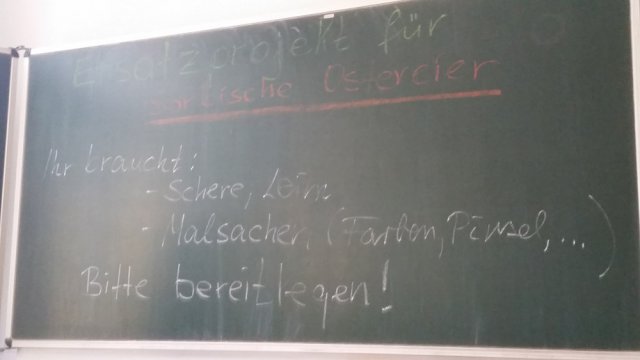 Ersatzprojekt für
sorbische Ostereier
Ihr braucht:
- Schere, Leim
- Malsachen (Farben, Pinsel, ...)
Bitte bereitlegen!